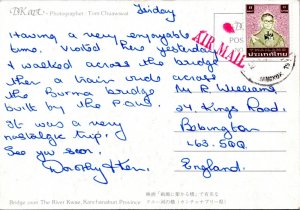 DK art • Photographer: Tom Chuawiwat
Friday
Having a very enjoyable
time. Visited Rex yesterday
& walked across the bridge
then a train ride across
the Burma bridge
built by the P.O.Ws
It was a very
nostalgic trip.
See you soon.
Dorothy & Ken.
AIR MAIL
POS
ประเทศไทย
Mr R Williams,
24. Kings Road.
Bebington
L63. 5QQ.
England.
Bridge over The River Kwae, Kanchanaburi Province.
映画「戦場に架かる橋」で有名な
クワー河の橋(カンチャナブリー県)